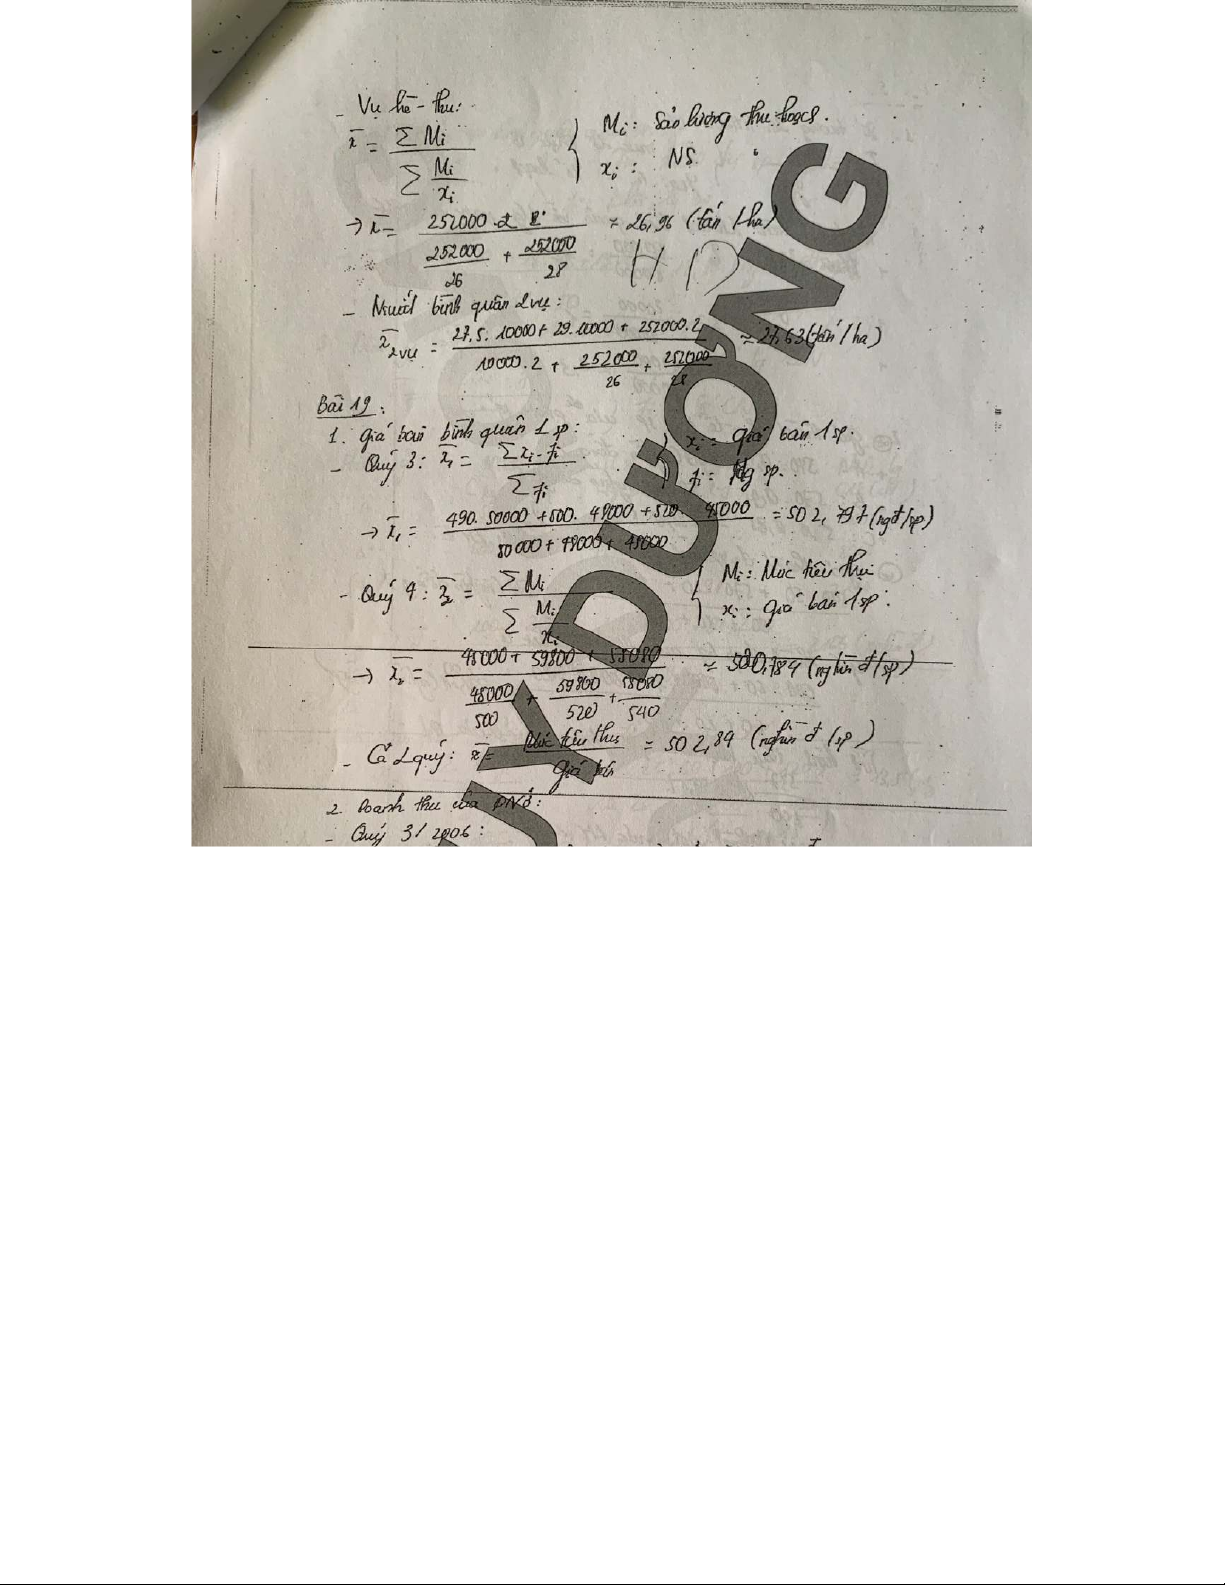 - Vụ hè - thu:
x̄ = ∑ Mi / ∑ Mi/xi { Mi: Sản lượng thu hoạch. xi: NS.
→ x̄ = 252000.2 / (252000/26 + 252000/28) = 26,96 (tấn/ha)
HD
- NSuất bình quân 2 vụ:
x̄ 2vụ = (27,5. 10000 + 29. 10000 + 252000.2) / (10000.2 + 252000/26 + 252000/28) ≈ 27,63 (tấn/ha)
Bài 19:
1. Giá bán bình quân 1 sp:
- Quý 3: x̄1 = ∑xi.fi / ∑fi { xi: giá bán 1 sp. fi: lg sp.
→ x̄1 = (490. 50000 + 500. 49000 + 520. 45000) / (50000 + 49000 + 45000) = 502,797 (ngđ/sp)
- Quý 4: x̄2 = ∑Mi / ∑ Mi/xi { Mi: Mức tiêu thụ. xi: giá bán 1 sp.
→ x̄2 = (48000 + 59800 + 58080) / (48000/500 + 59800/520 + 58080/540) ≈ 520,784 (nghìn đ/sp)
- Cả 2 quý: x̄ = Mức tiêu thụ / Giá bán = 502,89 (nghìn đ/sp)
2. Doanh thu của
- Quý 3/2006:
UY DƯƠNG